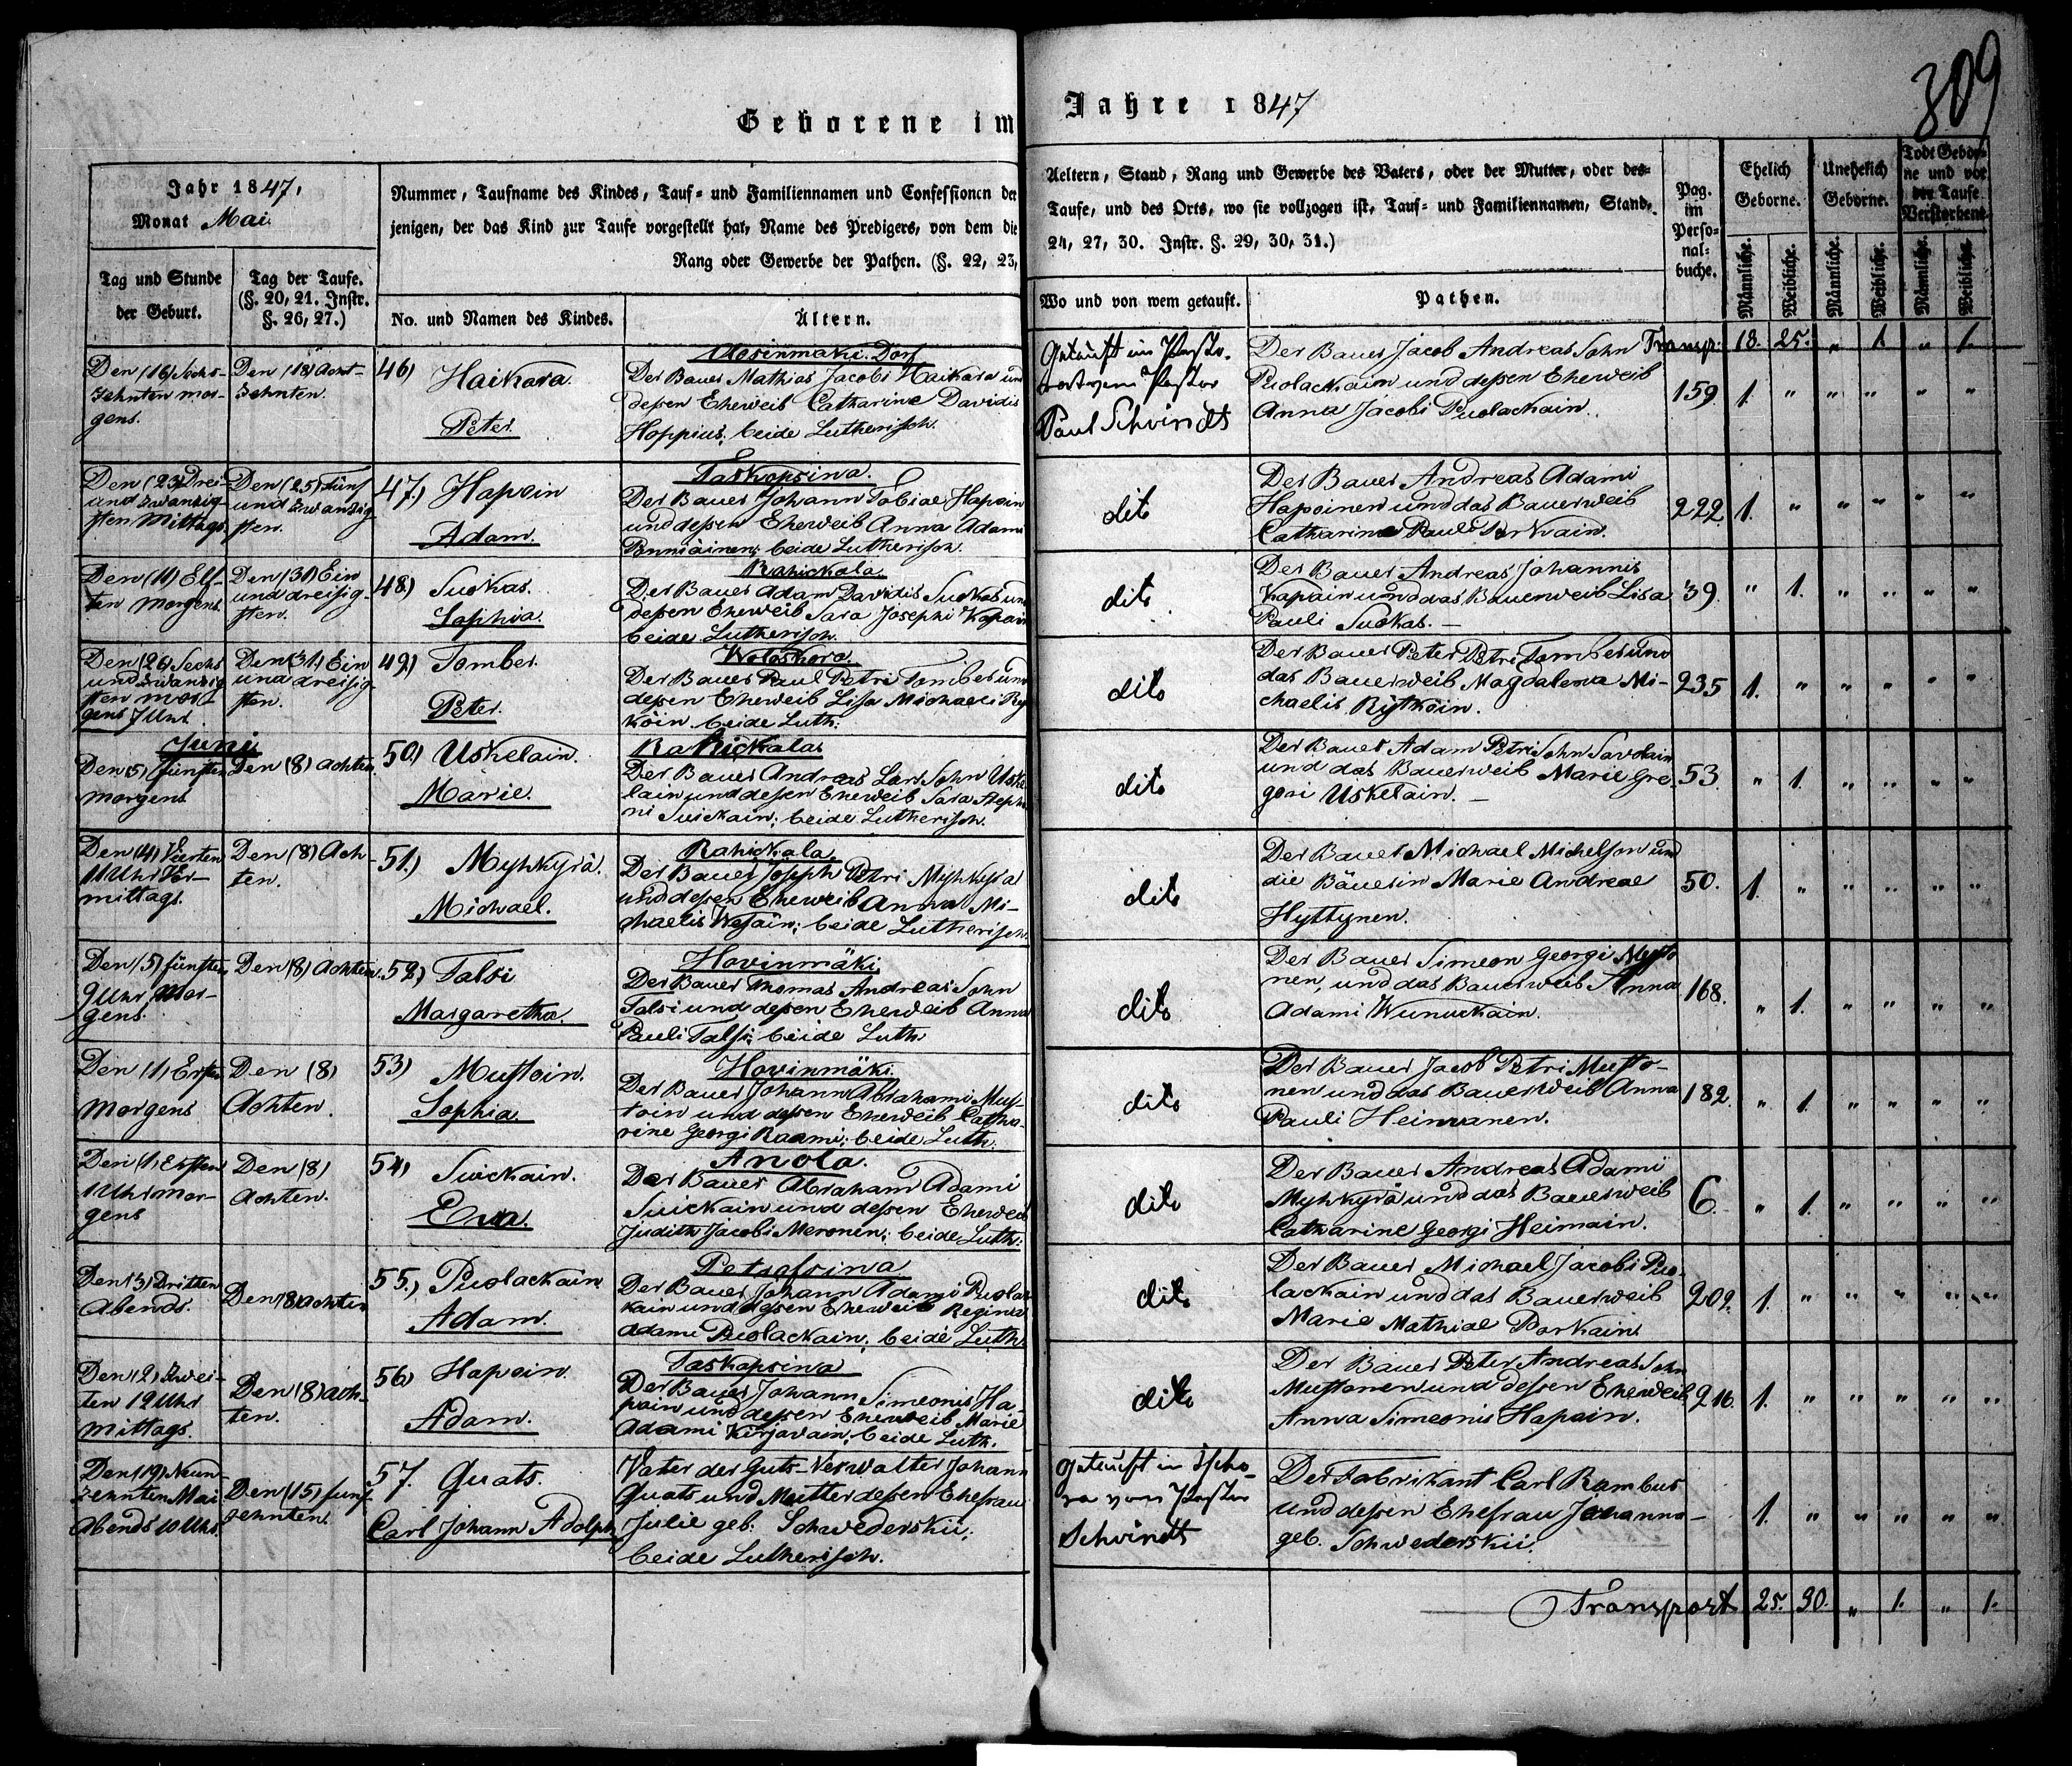 309
Geborene im Jahre 1847
Jahr 1847,
Monat Mai.
Tag und Stunde
der Geburt.
Tag der Taufe.
(§. 20, 21. Instr.
§. 26, 27.)
Nummer, Taufname des Kindes, Tauf- und Familiennamen und Confessionen der
jenigen, der das Kind zur Taufe vorgestellt hat, Name des Predigers, von dem die
Rang oder Gewerbe der Pathen. (§. 22, 23,
No. und Namen des Kindes.
Ältern.
Aeltern, Stand, Rang und Gewerbe des Vaters, oder der Mutter, oder des-
Taufe, und des Orts, wo sie vollzogen ist, Tauf- und Familiennamen, Stand,
24, 27, 30. Instr. §. 29, 30, 31.)
Wo und von wem getauft.
Pathen.
Pag.
im
Perso-
nal-
buche.
Ehelich
Geborne.
Unehelich
Geborne.
Todt Gebor-
ne und vor
der Taufe
Verstorbene
Männliche.
Weibliche.
Männliche.
Weibliche.
Männliche.
Weibliche.
Transp: 18. 25. " 1. " 1.
Den (16) Sechs-
zehnten mor-
gens.
Den (18) Acht-
zehnten.
46) Haikara
Peter.
Dorf
Der Bauer Mathias Jacobi Haikara und
dessen Eheweib Catharine Davidis
Hoppius, beide Lutherisch.
Getauft im Pasto-
rat vom Pastor
Paul Schvindt
Der Bauer Jacob Andreas Sohn
Puolackain und dessen Eheweib
Anna Jacobi Puolackain.
159. 1. " " " " "
Den (23) Drei-
und zwanzig-
sten Mittags.
Den (25) Fünf
und zwanzig-
sten.
47.) Hapoin
Adam.
Taskopsina.
Der Bauer Johann Tobiae Hapoin
und dessen Eheweib Anna Adami
beide Lutherisch.
dito
Der Bauer Andreas Adami
Hapoinen und das Bauerweib
Catharina Pauli Porkain.
222. 1. " " " " "
Den (11) Elf-
ten Morgens.
Den (31) Ein
und dreisig-
sten.
48.) Suokas.
Sophia.
Rahickola.
Der Bauer Adam Davidis Suokas und
dessen Eheweib Sara Josephi Kapain
beide Lutherisch.
dito
Der Bauer Andreas Johannis
Kapain und das Bauerweib Lisa
Pauli Suokas. —
39. " 1. " " " "
Den (26) Sechs
und zwanzig
sten mor-
gens 7 Uhr.
Den (31.) Ein
und dreisig-
sten.
49.) Tomber.
Peter.
Woloskora.
Der Bauer Paul Petri Tomber und
dessen Eheweib Lisa Michaeli Ryt
köin beide Luth:
dito
Der Bauer Peter Petri Tomber und
das Bauerweib Magdalena Mi-
chaelis Rytköin.
235 1. " " " " "
Juni
Den (5) fünften
morgens
Den (8) Achten.
50.) Uskelain.
Marie.
Rahickala
Der Bauer Andreas Lars Sohn Uske
lain und dessen Eheweib Sara Steph
ni Suickain; beide Lutherisch.
dito
Der Bauer Adam Petri Sohn Savolain
und das Bauerweib Marie Gre-
gori Uskelain. —
53. " 1. " " " "
Den (4) Vierten
11 Uhr Vor-
mittags.
Den (8) Ach-
ten.
51.) Myhkyrä.
Michael.
Rahickala.
Der Bauer Joseph Petri Myhkyrä
und dessen Eheweib Anna Mi-
chaelis Wesäin; beide Lutherisch.
dito
Der Bauer Michael Michelson und
die Bäuerin Marie Andreae
Hyttynen.
50. 1. " " " " "
Den (5) fünften
9 Uhr Mor-
gens.
Den (8) Achten.
52.) Talsi
Margaretha.
Hovinmäki.
Der Bauer Thomas Andreas Sohn
Talsi und dessen Eheweib Anna
Pauli Talsi; beide Luth.
dito
Der Bauer Simeon Georgi Musto
nen, und das Bauerweib Anna
Adami Wunuckain.
168. " 1. " " " "
Den (1) Ersten
Morgens
Den (8)
Achten.
53) Mustoin.
Sophia.
Hovinmäki.
Der Bauer Johann Abrahami Mus-
toin und dessen Eheweib Catha-
rine Georgi Raami; beide Luth.
dito
Der Bauer Jacob Petri Musto-
nen und das Bauerweib Anna
Pauli Heimanen.
182. " 1. " " " "
Den (1) Ersten
1 Uhr mor-
gens
Den (8)
Achten.
54) Suickain.
Eva.
Anola.
Der Bauer Abraham Adami
Suickain und dessen Eheweib
Judith Jacobi Meronen; beide Luth:
dito
Der Bauer Andreas Adami
Myhkyrä und das Bauerweib
Catharine Georgi Heimain.
6. " 1. " " " "
Den (3) Dritten
Abends.
Den (8) Achten
55.) Puolackain
Adam.
Petrofsina
Der Bauer Johann Adami Puolac
kain und dessen Eheweib Regina
Adami Puolackain; beide Luth.
dito
Der Bauer Michael Jacobi Puo-
lackain und das Bauerweib
Marie Mathiae Porkain
202. 1. " " " " "
Den (2) Zwei-
ten 12 Uhr
Mittags.
Den (8) Ach-
ten.
56) Hapoin.
Adam.
Taskopsina
Der Bauer Johann Simeonis Ha-
poin und dessen Eheweib Marie
Adami Kirjavain; beide Luth.
dito
Der Bauer Peter Andreas Sohn
Mustonen und dessen Eheweib
Anna Simeonis Hapoin.
216. 1. " " " " "
Den (19) Neun-
zehnten Mai
Abends 10 Uhr.
Den (15) funf-
zehnten.
57. Quats.
Carl Johann Adolph
Vater der Guts-Verwalter Johann
Quats und Mutter dessen Ehefrau
Julie geb: Schwederskii;
beide Lutherisch.
Getauft in Ischo-
ra vom Pastor
Schvindt
Der Fabrikant Carl Rambus
und dessen Ehefrau Johanna
geb. Schwederskii.
1. " " " " "
Transport 25. 30. " 1. " 1.